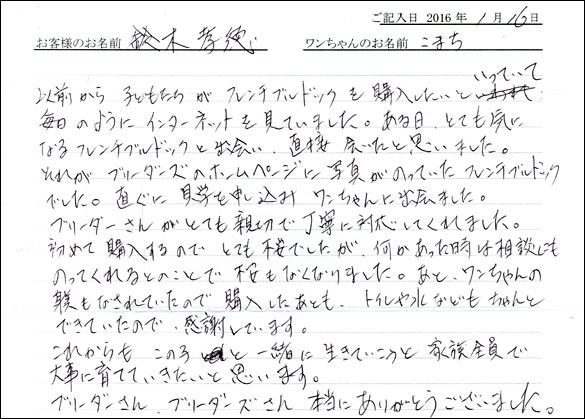 ご記入日 2016年 1月 16日
お客様のお名前 鈴木孝徳 ワンちゃんのお名前 こまち
いっていて
以前から 子どもたち が フレンチブルドック を 購入したい と
毎日 のように インターネット を 見ていました。ある日、とても気に
なる フレンチブルドック と 出会い、直接 会いたと思いました。
それが ブリーダーズ の ホームページに 写真 がのっていた フレンチブルドック
でした。直ぐに 見学 を 申し込み ワンちゃんに 出会ました。
ブリーダー さん が とても 親切で 丁寧に 対応 してくれました。
初めて 購入するので とても 不安でしたが、何かあった時は 相談にも
のってくれるとのことで 不安もなくなりました。あと、ワンちゃんの
躾もなされていたので 購入 したあとも、トイレや水などもちゃんと
できていたので、感謝しています。
これからも この子 と 一緒に 生きていこうと 家族全員で
大事に育てていきたいと思います。
ブリーダーさん、ブリーダーズさん 本当にありがとうございました。